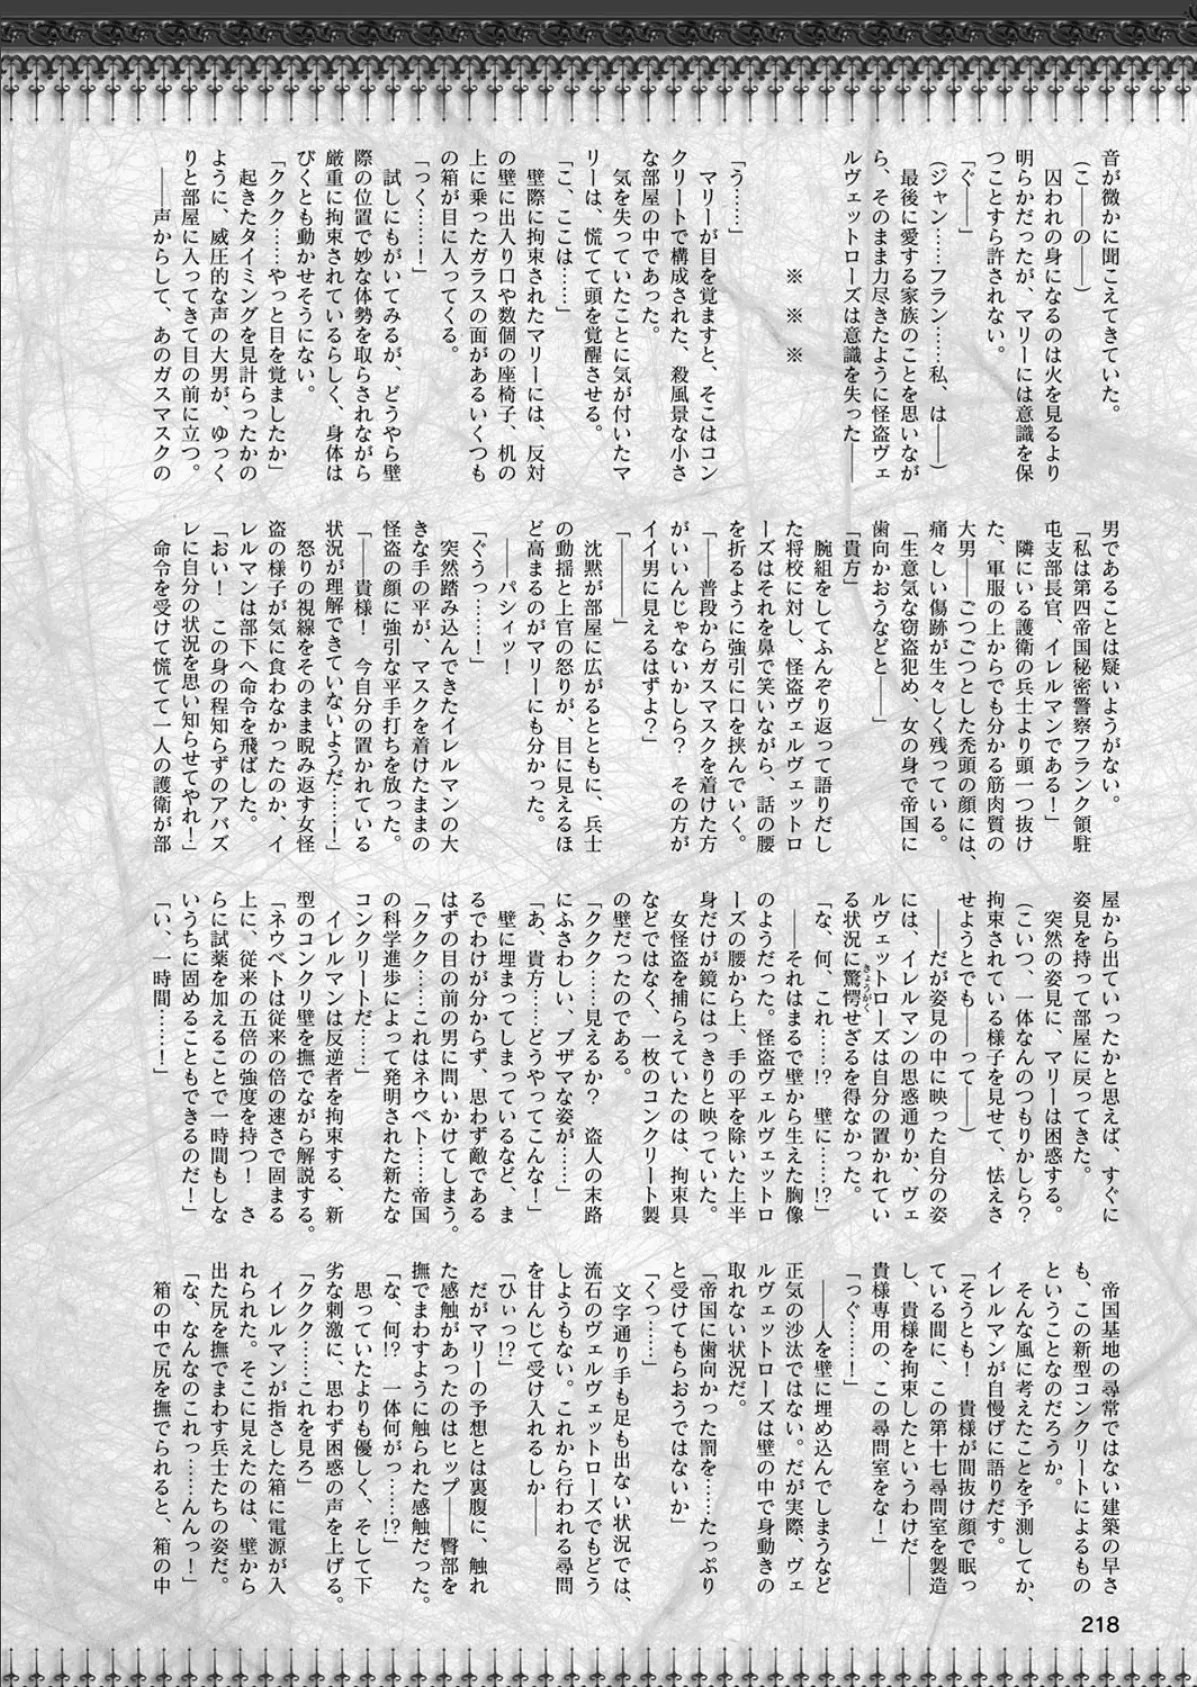 音が微かに聞こえてきていた。
(こ――の――)
　囚われの身になるのは火を見るより
明らかだったが、マリーには意識を保
つことすら許されない。
「ぐ――」
(ジャン……フラン……私、は――)
　最後に愛する家族のことを思いなが
ら、そのまま力尽きたように怪盗ヴェ
ルヴェットローズは意識を失った――
※　※　※
「う……」
　マリーが目を覚ますと、そこはコン
クリートで構成された、殺風景な小さ
な部屋の中であった。
　気を失っていたことに気が付いたマ
リーは、慌てて頭を覚醒させる。
「こ、ここは……」
　壁際に拘束されたマリーには、反対
の壁に出入り口や数個の座椅子、机の
上に乗ったガラスの面があるいくつも
の箱が目に入ってくる。
「っく……！」
　試しにもがいてみるが、どうやら壁
際の位置で妙な体勢を取らされながら
厳重に拘束されているらしく、身体は
びくとも動かせそうにない。
「ククク……やっと目を覚ましたか」
　起きたタイミングを見計らったかの
ように、威圧的な声の大男が、ゆっく
りと部屋に入ってきて目の前に立つ。
　――声からして、あのガスマスクの
男であることは疑いようがない。
「私は第四帝国秘密警察フランク領駐
屯支部長官、イレルマンである！」
　隣にいる護衛の兵士より頭一つ抜け
た、軍服の上からでも分かる筋肉質の
大男――ごつごつとした禿頭の顔には、
痛々しい傷跡が生々しく残っている。
「生意気な窃盗犯め、女の身で帝国に
歯向かおうなどと――」
「貴方」
　腕組をしてふんぞり返って語りだし
た将校に対し、怪盗ヴェルヴェットロ
ーズはそれを鼻で笑いながら、話の腰
を折るように強引に口を挟んでいく。
「――普段からガスマスクを着けた方
がいいんじゃないかしら？　その方が
イイ男に見えるはずよ？」
「――――」
　沈黙が部屋に広がるとともに、兵士
の動揺と上官の怒りが、目に見えるほ
ど高まるのがマリーにも分かった。
　――パシィッ！
「ぐうっ……！」
　突然踏み込んできたイレルマンの大
きな手の平が、マスクを着けたままの
怪盗の顔に強引な平手打ちを放った。
「――貴様！　今自分の置かれている
状況が理解できていないようだ……！」
　怒りの視線をそのまま睨み返す女怪
盗の様子が気に食わなかったのか、イ
レルマンは部下へ命令を飛ばした。
「おい！　この身の程知らずのアバズ
レに自分の状況を思い知らせてやれ！」
　命令を受けて慌てて一人の護衛が部
屋から出ていったかと思えば、すぐに
姿見を持って部屋に戻ってきた。
　突然の姿見に、マリーは困惑する。
(こいつ、一体なんのつもりかしら？
拘束されている様子を見せて、怯えさ
せようとでも――って――)
　――だが姿見の中に映った自分の姿
には、イレルマンの思惑通りか、ヴェ
ルヴェットローズは自分の置かれてい
る状況に驚愕（きょうがく）せざるを得なかった。
「な、何、これ……!?　壁に……!?」
　――それはまるで壁から生えた胸像
のようだった。怪盗ヴェルヴェットロ
ーズの腰から上、手の平を除いた上半
身だけが鏡にはっきりと映っていた。
　女怪盗を捕らえていたのは、拘束具
などではなく、一枚のコンクリート製
の壁だったのである。
「ククク……見えるか？　盗人の末路
にふさわしい、ブザマな姿が……」
「あ、貴方……どうやってこんな！」
　壁に埋まってしまっているなど、ま
るでわけが分からず、思わず敵である
はずの目の前の男に問いかけてしまう。
「ククク……これはネウベト……帝国
の科学進歩によって発明された新たな
コンクリートだ……」
　イレルマンは反逆者を拘束する、新
型のコンクリ壁を撫でながら解説する。
「ネウベトは従来の倍の速さで固まる
上に、従来の五倍の強度を持つ！　さ
らに試薬を加えることで一時間もしな
いうちに固めることもできるのだ！」
「い、一時間……！」
　帝国基地の尋常ではない建築の早さ
も、この新型コンクリートによるもの
ということなのだろうか。
　そんな風に考えたことを予測してか、
イレルマンが自慢げに語りだす。
「そうとも！　貴様が間抜け顔で眠っ
ている間に、この第十七尋問室を製造
し、貴様を拘束したというわけだ――
貴様専用の、この尋問室をな！」
「っぐ……！」
　――人を壁に埋め込んでしまうなど
正気の沙汰ではない。だが実際、ヴェ
ルヴェットローズは壁の中で身動きの
取れない状況だ。
「帝国に歯向かった罰を……たっぷり
と受けてもらおうではないか」
「くっ……」
　文字通り手も足も出ない状況では、
流石のヴェルヴェットローズでもどう
しようもない。これから行われる尋問
を甘んじて受け入れるしか――
「ひぃっ!?」
　だがマリーの予想とは裏腹に、触れ
た感触があったのはヒップ――臀部を
撫でまわすように触られた感触だった。
「な、何!?　一体何がっ……!?」
　思っていたよりも優しく、そして下
劣な刺激に、思わず困惑の声を上げる。
「ククク……これを見ろ」
　イレルマンが指さした箱に電源が入
れられた。そこに見えたのは、壁から
出た尻を撫でまわす兵士たちの姿だ。
「な、なんなのこれっ……んんっ！」
　箱の中で尻を撫でられると、箱の中
218